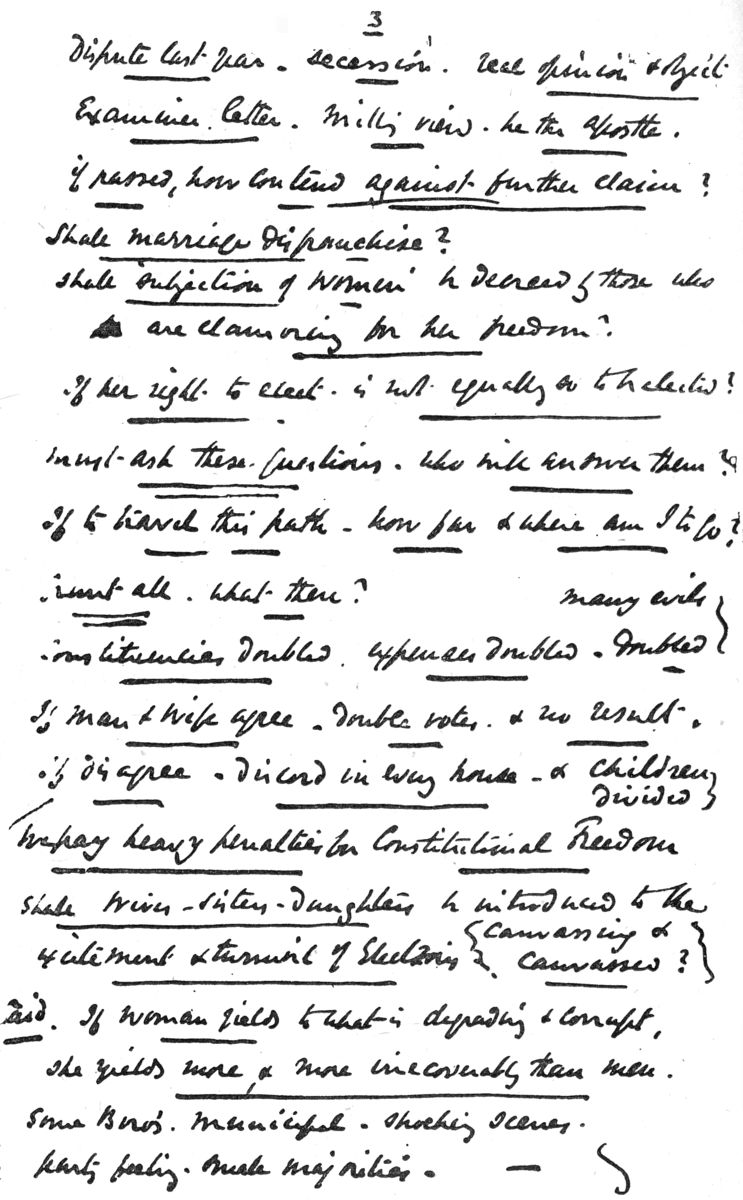 3
Dispute last year - secession. real opinion & object
Examiner letter. Mill's view. he the apostle.
if passed, how contend against further claim?
Shall marriage disfranchise?
shall 'subjection of women' be decreed by those who
are clamoring for her freedom?
If her right to elect - is not equally so to be elected?
must ask these questions. who will answer them?
If to travel this path - how far & where am I to go?
grant all. what then? many evils
Constituencies doubled. expenses doubled - doubled
If man & wife agree - double votes. & no result.
if disagree - discord in every house - & children
divided
We pay heavy penalties for Constitutional Freedom
shall Wives - sisters - daughters be introduced to the
excitement & turmoil of Elections canvassing &
canvassed?
said. If woman yields to what is degrading & corrupt,
she yields more, & more irrecoverably than men.
Some Boro's. Municipal - shocking scenes.
party feeling. small majorities -